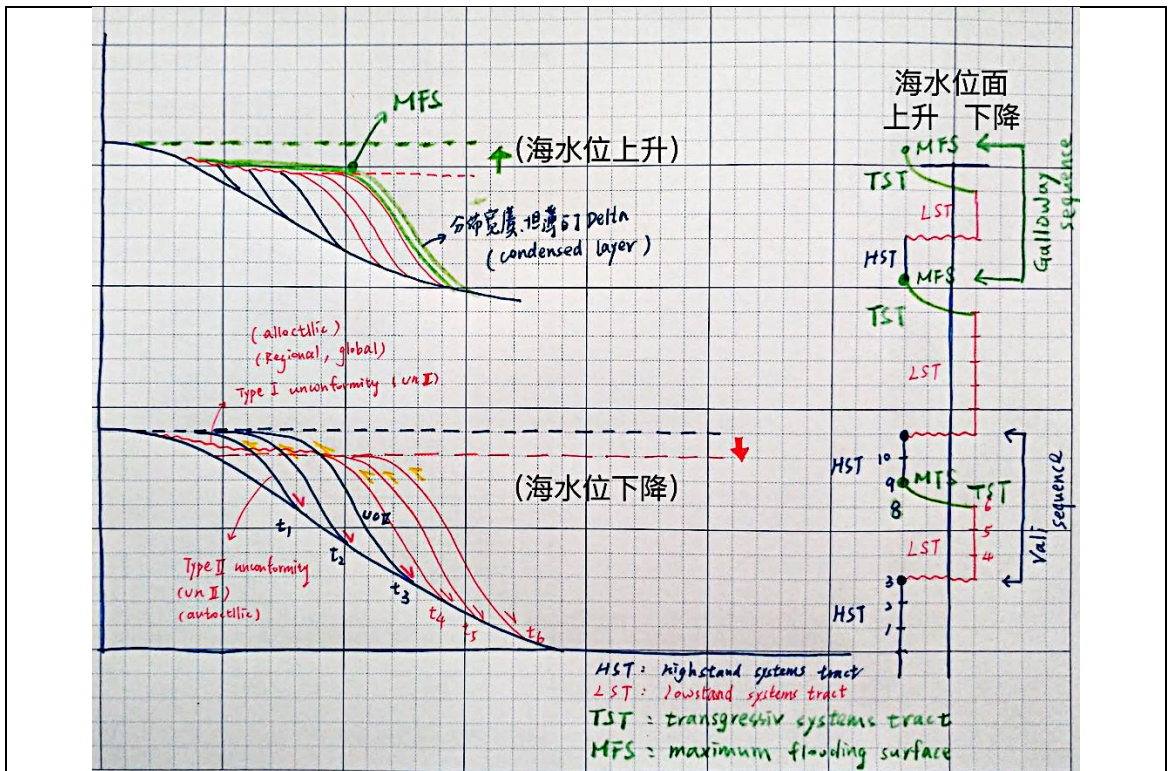 MFS
(海水位上升)
分佈寬廣.但薄的Delta
(condensed layer)
(alloctllic)
(Regional, global)
Type I unconformity (un I)
(海水位下降)
un II
t₁
t₂
t₃
t₄
t₅
t₆
Type II unconformity
(un II)
(autoctllic)
海水位面
上升 下降
MFS
TST
LST
HST
MFS
TST
Galloway
sequence
LST
HST
10
9
MFS
8
TST
6
5
LST
4
3
Vail
sequence
HST
2
1
HST: highstand systems tract
LST: lowstand systems tract
TST: transgressiv systems tract
MFS: maximum flooding surface